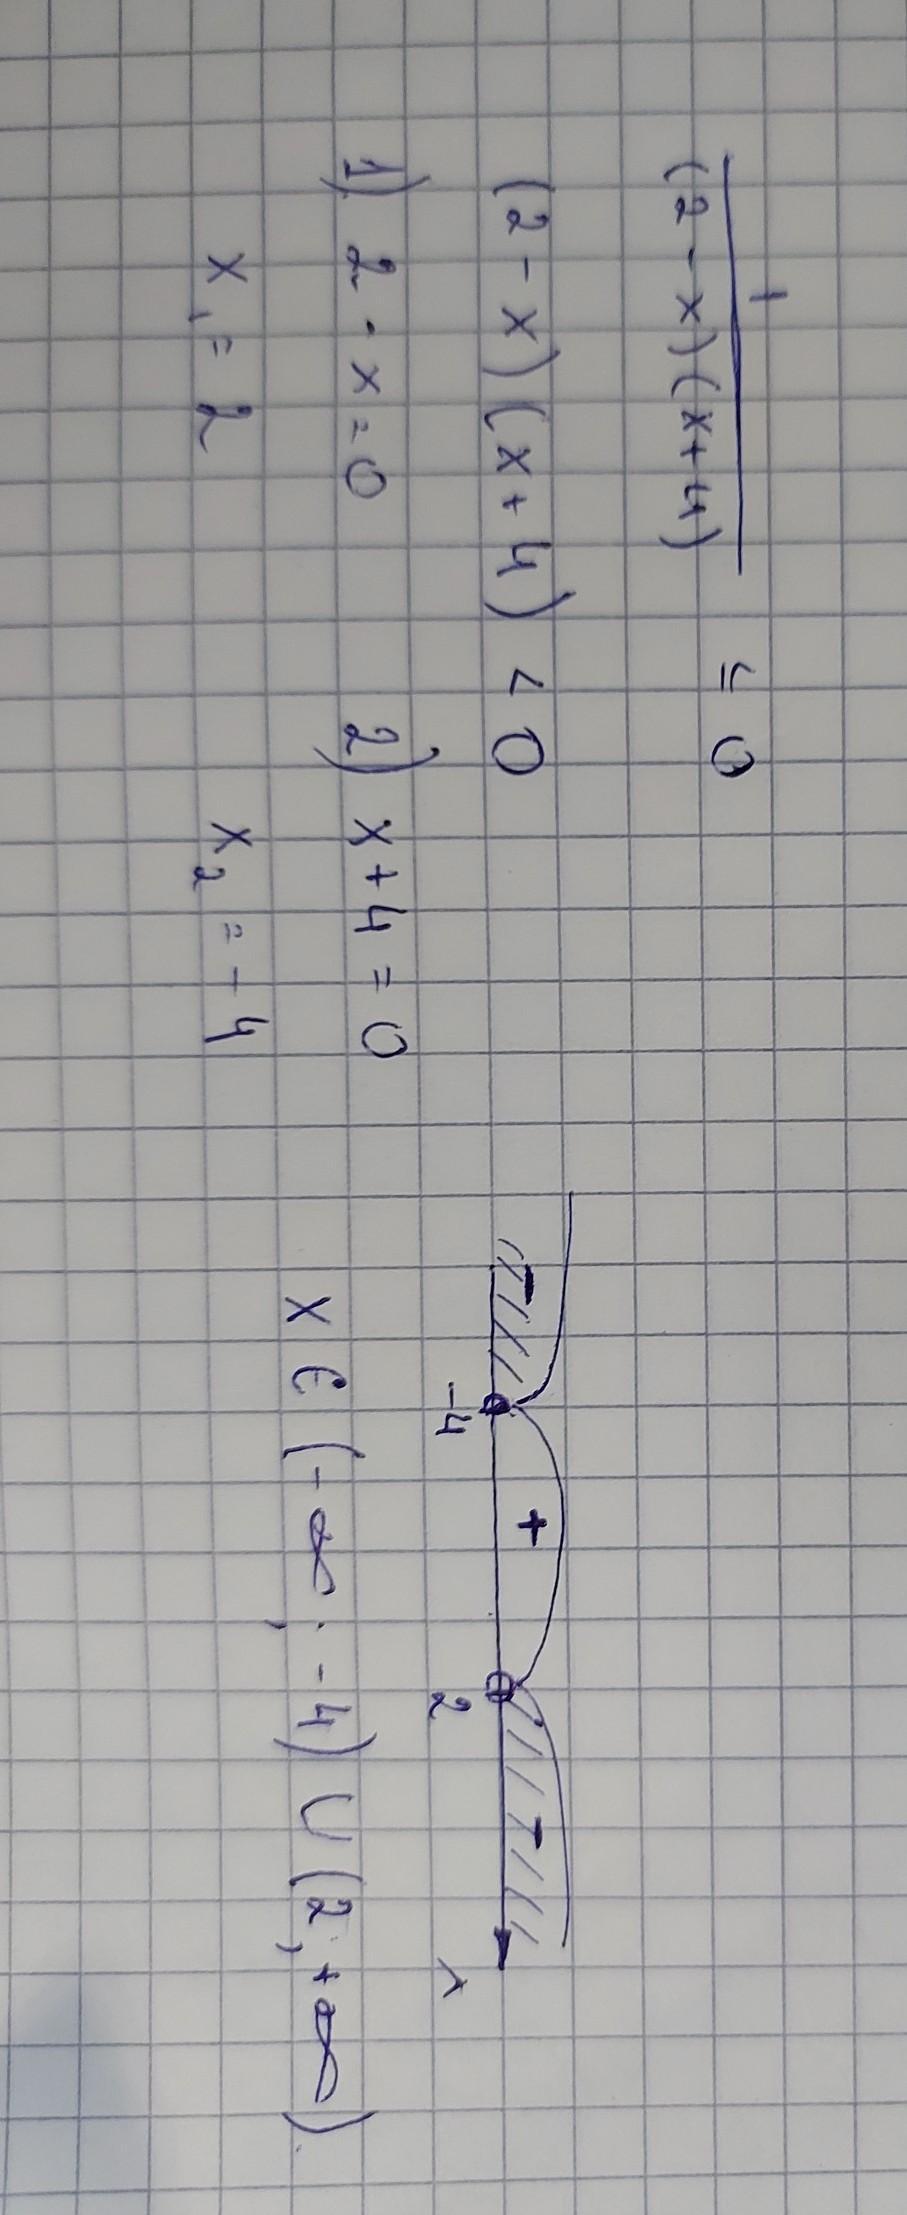 1
(2 - x)(x + 4) ≤ 0
(2 - x)(x + 4) < 0
1) 2 - x = 0 2) x + 4 = 0
x₁ = 2 x₂ = - 4
- + -
-4 2
x ∈ (- ∞ ; - 4) ∪ (2 ; + ∞).